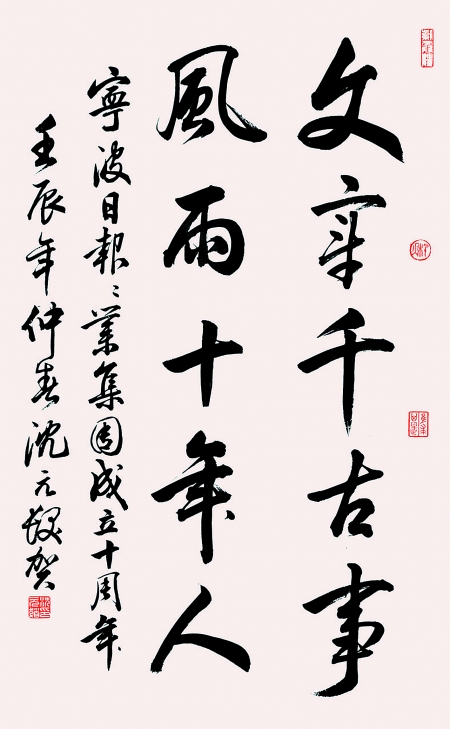 文章千古事
風雨十年人
寧波日報報業集團成立十周年
壬辰年仲春沈元魁賀